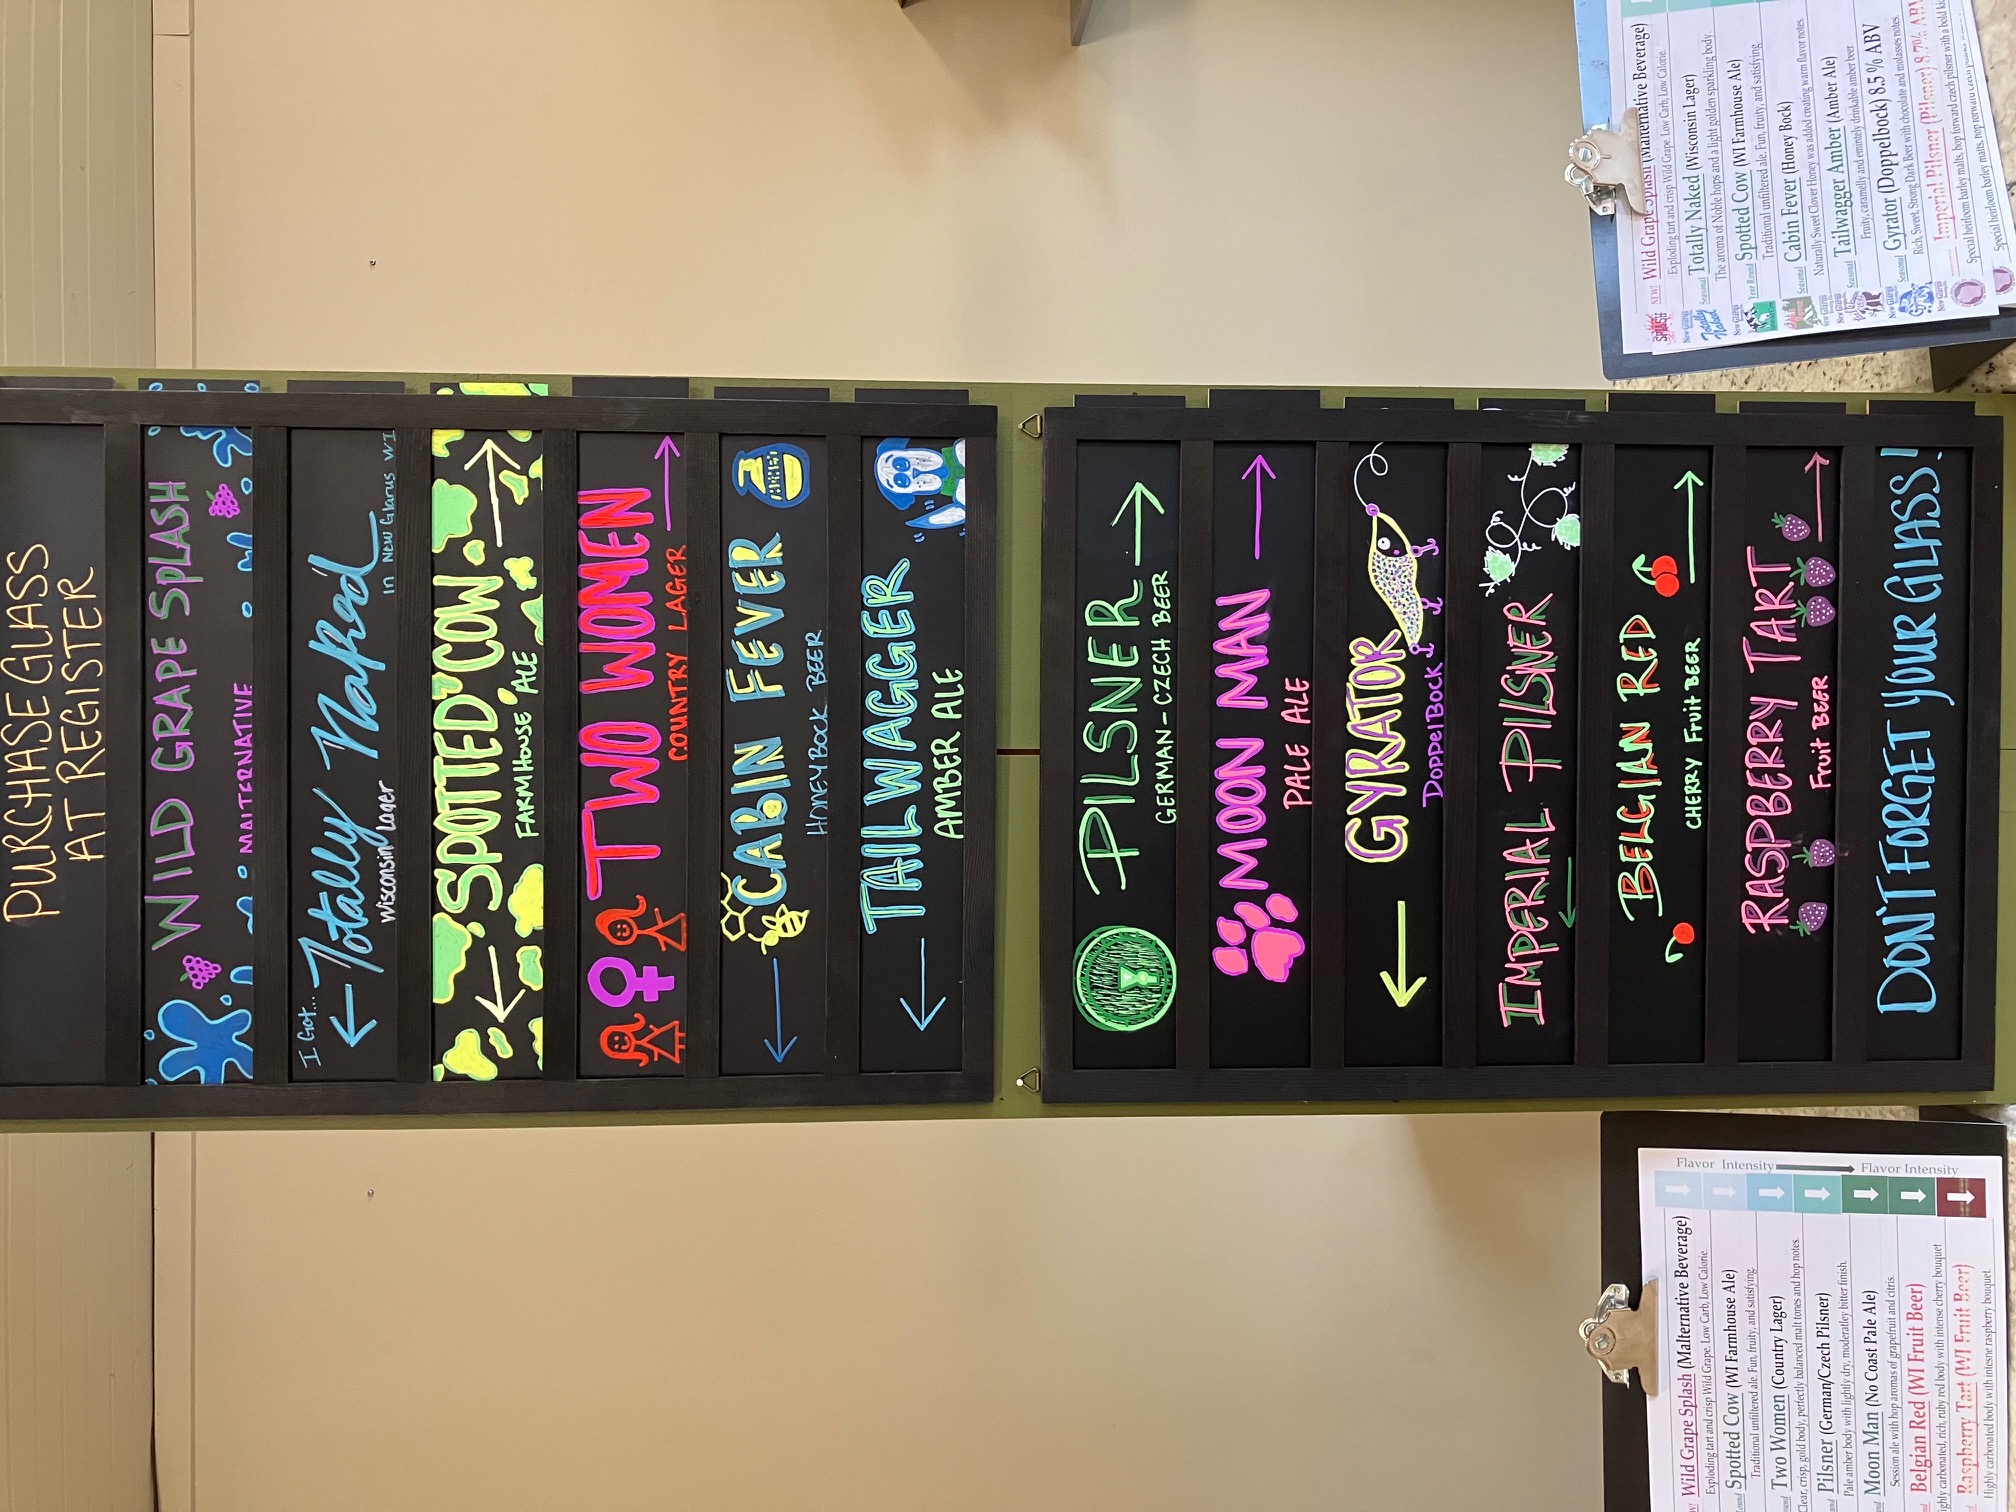 PURCHASE GLASS
AT REGISTER
WILD GRAPE SPLASH
MALTERNATIVE
I Got...
Totally Naked
Wisconsin Lager
in New Glarus WI
SPOTTED COW
FARMHOUSE ALE
TWO WOMEN
COUNTRY LAGER
CABIN FEVER
HONEY BOCK BEER
TAILWAGGER
AMBER ALE
PILSNER
GERMAN-CZECH BEER
MOON MAN
PALE ALE
GYRATOR
DOPPELBOCK
IMPERIAL PILSNER
BELGIAN RED
CHERRY FRUIT BEER
RASPBERRY TART
FRUIT BEER
DON'T FORGET YOUR GLASS!
Flavor Intensity
Flavor Intensity
Wild Grape Splash (Malternative Beverage)
Exploding tart and crisp Wild Grape. Low Carb, Low Calorie.
Spotted Cow (WI Farmhouse Ale)
Traditional unfiltered ale. Fun, fruity, and satisfying.
Two Women (Country Lager)
Clear, crisp, gold body, perfectly balanced malt tones and hop notes.
Pilsner (German/Czech Pilsner)
Pale amber body with lightly dry, moderatley bitter finish.
Moon Man (No Coast Pale Ale)
Session ale with hop aromas of grapefruit and citris.
Belgian Red (WI Fruit Beer)
carbonated, rich, ruby red body with intense cherry bouquet
Raspberry Tart (WI Fruit Beer)
Highly carbonated body with intesne raspberry bouquet.
NEW! Wild Grape Splash (Malternative Beverage)
Exploding tart and crisp Wild Grape. Low Carb, Low Calorie.
Seasonal Totally Naked (Wisconsin Lager)
The aroma of Noble hops and a light golden sparkling body.
Year Round Spotted Cow (WI Farmhouse Ale)
Traditional unfiltered ale. Fun, fruity, and satisfying.
Seasonal Cabin Fever (Honey Bock)
Naturally Sweet Clover Honey was added creating warm flavor notes.
Seasonal Tailwagger Amber (Amber Ale)
Fruity, caramelly and eminitely drinkable amber beer.
Seasonal Gyrator (Doppelbock) 8.5 % ABV
Rich, Sweet, Strong Dark Beer with chocolate and molasses notes.
Imperial Pilsner (Pilsner) 8.7% ABV
Special heirloom barley malts, hop forward czech pilsner with a bold
Special heirloom barley malts, hop forward czech